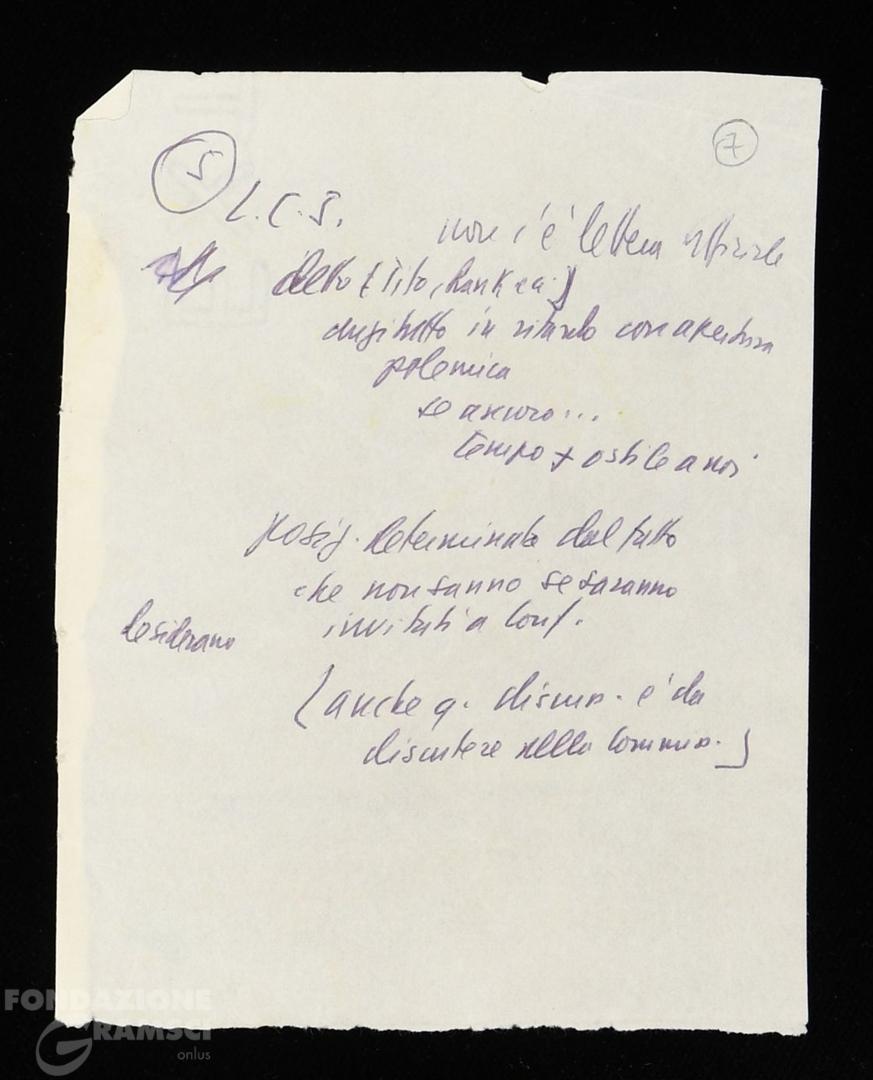 5
7
L.C.J.
non c'è lettera ufficiale
detto [Tito, Rank ea.]
anzitutto in ritardo con apertura
polemica
se ancora...
tempo + ostile a noi
Posiz. determinata dal fatto
che non sanno se saranno
invitati a Conf.
desiderano
[anche q. discuss. è da
discutere nella Commiss.]
FONDAZIONE
GRAMSCI
onlus